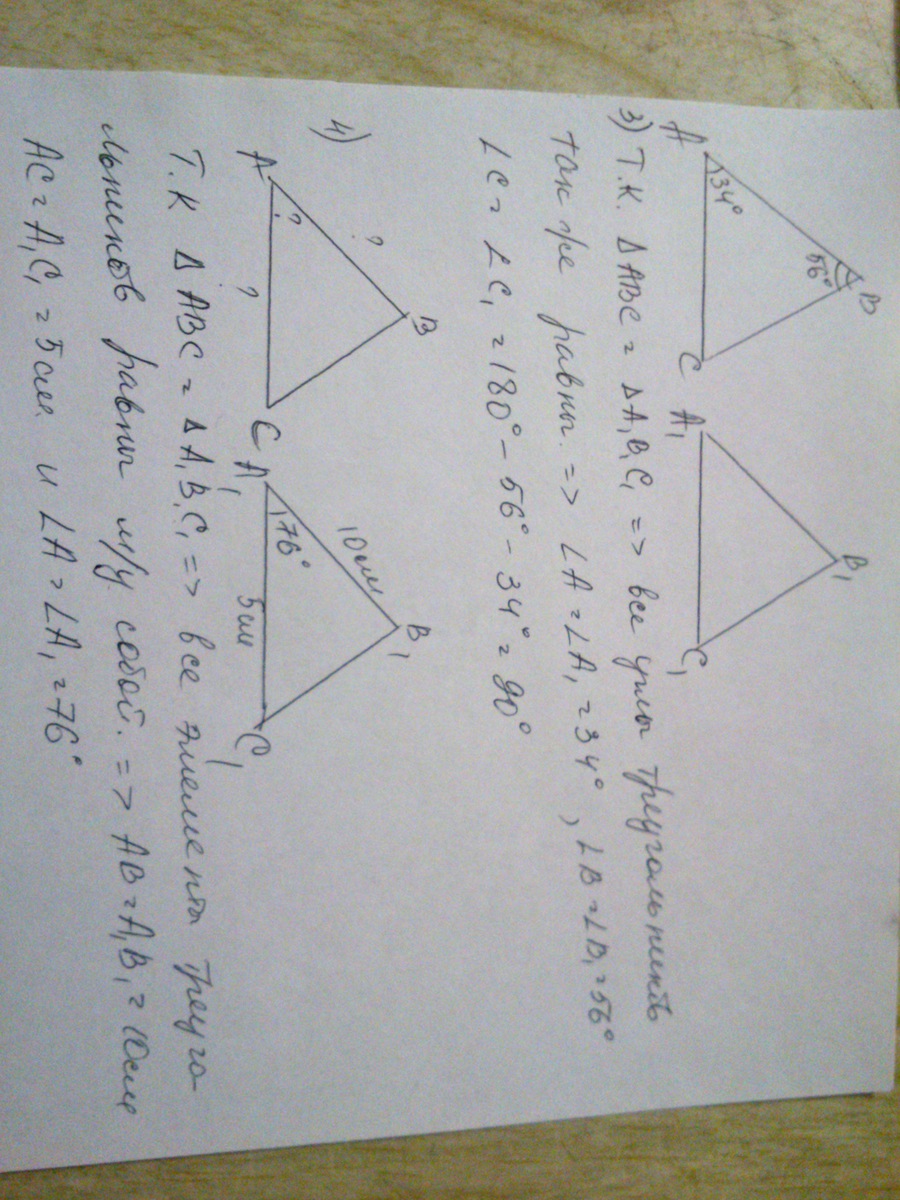 A 34° 56° B C A₁ B₁ C₁
3) Т.к. Δ ABC = Δ A₁B₁C₁ => все углы треугольников
так же равны. => ∠A = ∠A₁ = 34°, ∠B = ∠B₁ = 56°
∠C = ∠C₁ = 180° - 56° - 34° = 90°
4)
A ? ? ? B C A₁ 76° 10см 5см B₁ C₁
Т.к Δ ABC = Δ A₁B₁C₁ => все элементы треуго
льников равны м/у собой. => AB = A₁B₁ = 10см
AC = A₁C₁ = 5см и ∠A = ∠A₁ = 76°